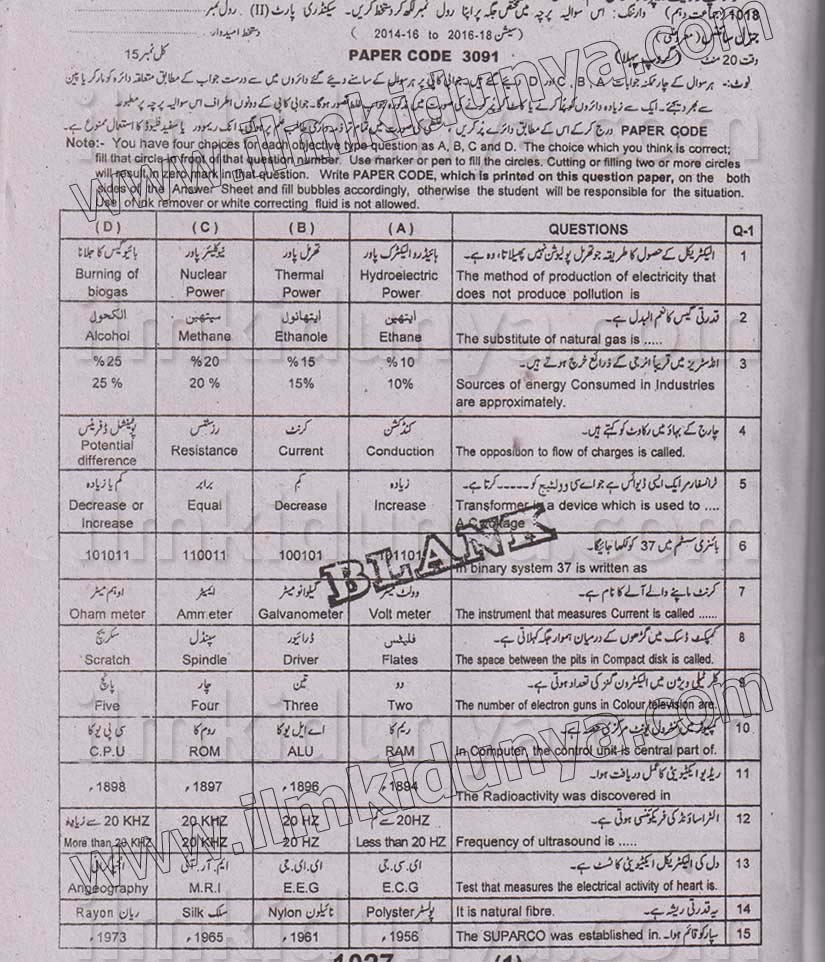 1018 (جماعت دہم) وارننگ: اس سوالیہ پرچہ میں مختص جگہ پر اپنا رول نمبر لکھ کر دستخط کریں۔ سیکنڈری پارٹ (II) رول نمبر
جنرل سائنس (معروضی) (سیشن 2016-18 to 2014-16) دستخط امیدوار
(گروپ پہلا)
وقت 20 منٹ PAPER CODE 3091 کل نمبر 15
نوٹ:- ہر سوال کے چار ممکنہ جوابات A ,B ,C اور D دیئے گئے ہیں۔ جوابی کاپی پر ہر سوال کے سامنے دیئے گئے دائروں میں سے درست جواب کے مطابق متعلقہ دائرہ کو مارکر یا پین
سے بھر دیجئے۔ ایک سے زیادہ دائروں کو پُر کرنے یا کاٹ کر پُر کرنے کی صورت میں مذکورہ جواب غلط تصور ہوگا۔ جوابی کاپی کے دونوں اطراف اس سوالیہ پرچہ پر مطبوعہ
PAPER CODE درج کر کے اس کے مطابق دائرے پُر کریں، کا استعمال ممنوع ہے۔
Note:- You have four choices for each objective type question as A, B, C and D. The choice which you think is correct;
fill that circle in front of that question number. Use marker or pen to fill the circles. Cutting or filling two or more circles
will result in zero mark in that question. Write PAPER CODE, which is printed on this question paper, on the both
sides of the Answer Sheet and fill bubbles accordingly, otherwise the student will be responsible for the situation.
Use of ink remover or white correcting fluid is not allowed.
( D ) ( C ) ( B ) ( A ) QUESTIONS Q-1
بائیو گیس کا جلانا نیوکلیئر پاور تھرمل پاور ہائیڈرو الیکٹرک پاور الیکٹریکل کے حصول کا طریقہ جو تھرمل پولیوشن نہیں پھیلاتا، وہ ہے۔ 1
Burning of Nuclear Thermal Hydroelectric The method of production of electricity that
biogas Power Power Power does not produce pollution is
الکحول میتھین ایتھانول ایتھین قدرتی گیس کا نعم البدل ہے۔ 2
Alcohol Methane Ethanole Ethane The substitute of natural gas is .....
%25 %20 %15 %10 انڈسٹریز میں تقریباً انرجی کے ذرائع خرچ ہوتے ہیں۔ 3
25 % 20 % 15% 10% Sources of energy Consumed in Industries
are approximately.
پوٹینشل ڈفرینس رزسٹنس کرنٹ کنڈکشن چارج کے بہاؤ میں رکاوٹ کو کہتے ہیں۔ 4
Potential
difference Resistance Current Conduction The opposition to flow of charges is called.
کم یا زیادہ برابر کم زیادہ ٹرانسفارمر ایک ایسی ڈیوائس ہے جو اے سی وولٹیج کو ..... کرتا ہے۔ 5
Decrease or Equal Decrease Increase Transformer is a device which is used to ....
Increase A.C voltage
101011 110011 100101 101101 بائنری سسٹم میں 37 کو لکھا جائیگا۔ 6
In binary system 37 is written as
اوہم میٹر ایمیٹر گیلوانومیٹر وولٹ میٹر کرنٹ ماپنے والے آلے کا نام ہے۔ 7
Oham meter Ammeter Galvanometer Volt meter The instrument that measures Current is called ......
سکریچ سپنڈل ڈرائیور فلیٹس کمپیکٹ ڈسک میں گڑھوں کے درمیان ہموار جگہ کہلاتی ہے۔ 8
Scratch Spindle Driver Flates The space between the pits in Compact disk is called.
پانچ چار تین دو کلر ٹیلی ویژن میں الیکٹرون گنز کی تعداد ہوتی ہے۔ 9
Five Four Three Two The number of electron guns in Colour television are.
سی پی یو کا روم کا اے ایل یو کا ریم کا کمپیوٹر میں کنٹرول یونٹ مرکزی حصہ ہے۔ 10
C.P.U ROM ALU RAM In Computer, the control unit is central part of.
1898ء 1897ء 1896ء 1894ء ریڈیو ایکٹیویٹی کا عمل دریافت ہوا۔ 11
The Radioactivity was discovered in
20 KHZ سے زیادہ 20 KHZ 20 HZ 20HZ سے الٹراساؤنڈ کی فریکوئنسی ہوتی ہے۔ 12
More than 20 KHZ 20 KHZ 20 HZ Less than 20 HZ Frequency of ultrasound is .....
ایم۔آر۔آئی ای۔ای۔جی ای۔سی۔جی دل کی الیکٹریکل ایکٹیویٹی کا ٹسٹ ہے۔ 13
Angeography M.R.I E.E.G E.C.G Test that measures the electrical activity of heart is.
Rayon ریان Silk سلک Nylon نائیلون Polyster پولسٹر It is natural fibre. یہ قدرتی ریشہ ہے۔ 14
1973ء 1965ء 1961ء 1956ء The SUPARCO was established in. سپارکو قائم ہوا۔ 15
1027 (1)
BLANK
www.ilmkidunya.com
www.ilmkidunya.com
ilmkidunya.com
ilmkidunya.com
ilmkidunya.com